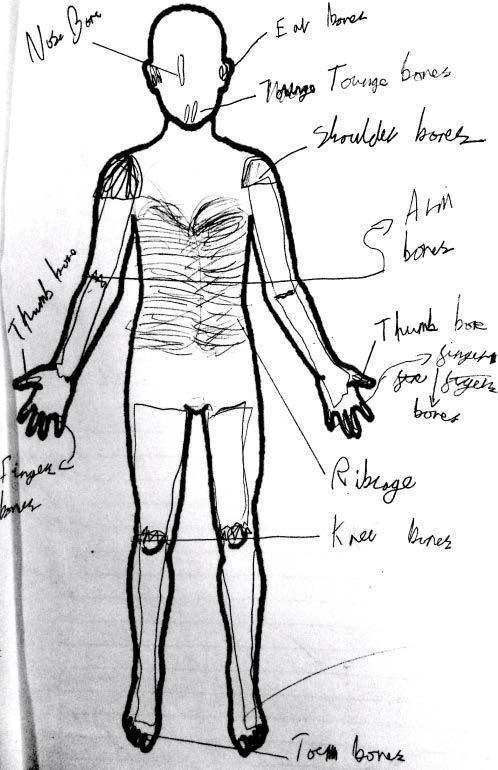 Nose Bone
Ear bones
Tounge bones
Shoulder bones
Arm
bones
Thumb bone
Thumb bone
fingers
bones
Finger
bones
Ribcage
Knee Bones
Toes bones